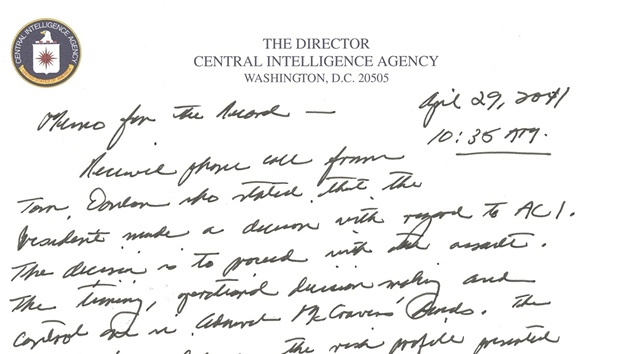 CENTRAL INTELLIGENCE AGENCY
UNITED STATES OF AMERICA
THE DIRECTOR
CENTRAL INTELLIGENCE AGENCY
WASHINGTON, D.C. 20505
April 29, 2011
Memo for the Record —
10:35 AM.
Received phone call from
Tom Donilon who stated that the
President made a decision with regard to AC1.
The decision is to proceed with the assault.
The timing, operational decision making and
control are in Admiral McCraven's hands. The
the risk profile presented